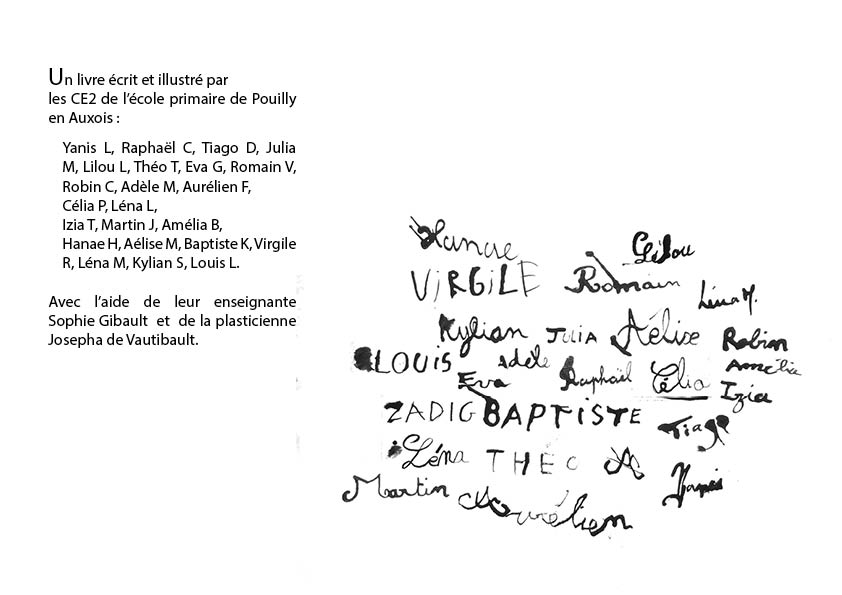 Un livre écrit et illustré par
les CE2 de l'école primaire de Pouilly
en Auxois :
Yanis L, Raphaël C, Tiago D, Julia
M, Lilou L, Théo T, Eva G, Romain V,
Robin C, Adèle M, Aurélien F,
Célia P, Léna L,
Izia T, Martin J, Amélia B,
Hanae H, Aélise M, Baptiste K, Virgile
R, Léna M, Kylian S, Louis L.
Avec l'aide de leur enseignante
Sophie Gibault et de la plasticienne
Josepha de Vautibault.
Hanae
Lilou
VIRGILE Romain
Léna M.
Kylian JULIA Aélise Robin
LOUIS adèle Amélia
Eva Raphaël Célia Izia
ZADIG BAPTISTE Tiago
Léna THÉO
Yanis
Martin Aurélien